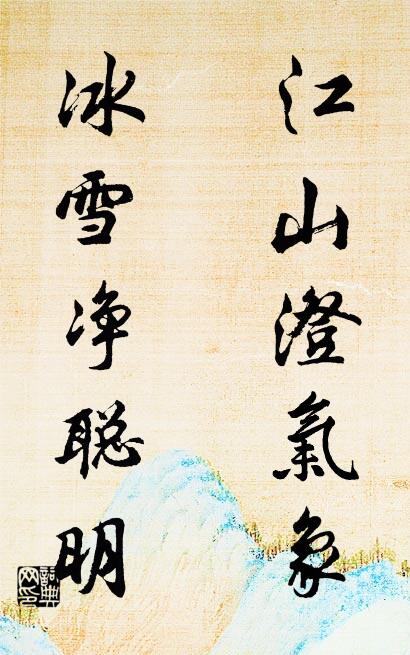 江山澄氣象
冰雪净聪明